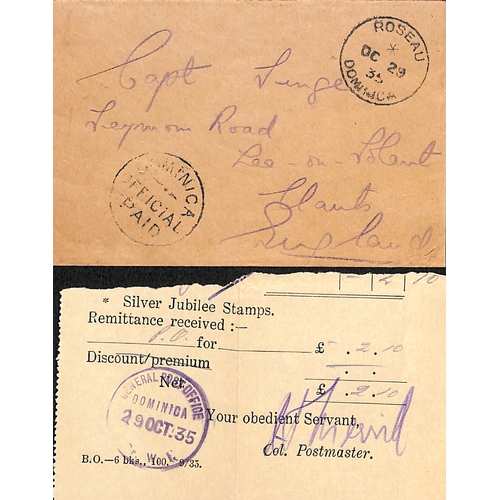 ROSEAU
*
OC 29
35
DOMINICA
Capt
Seymour Road
Lee-on-Solent
Hants
England
DOMINICA
OFFICIAL
PAID
- 2 10
* Silver Jubilee Stamps.
Remittance received :—
P.O. for £ - . 2 . 10
Discount/premium . .
Net £ . 2 . 10
GENERAL POST OFFICE
DOMINICA
29 OCT. 35
B.W.I.
Your obedient Servant,
Col. Postmaster.
B.O.—6 bks., 100.—9/35.